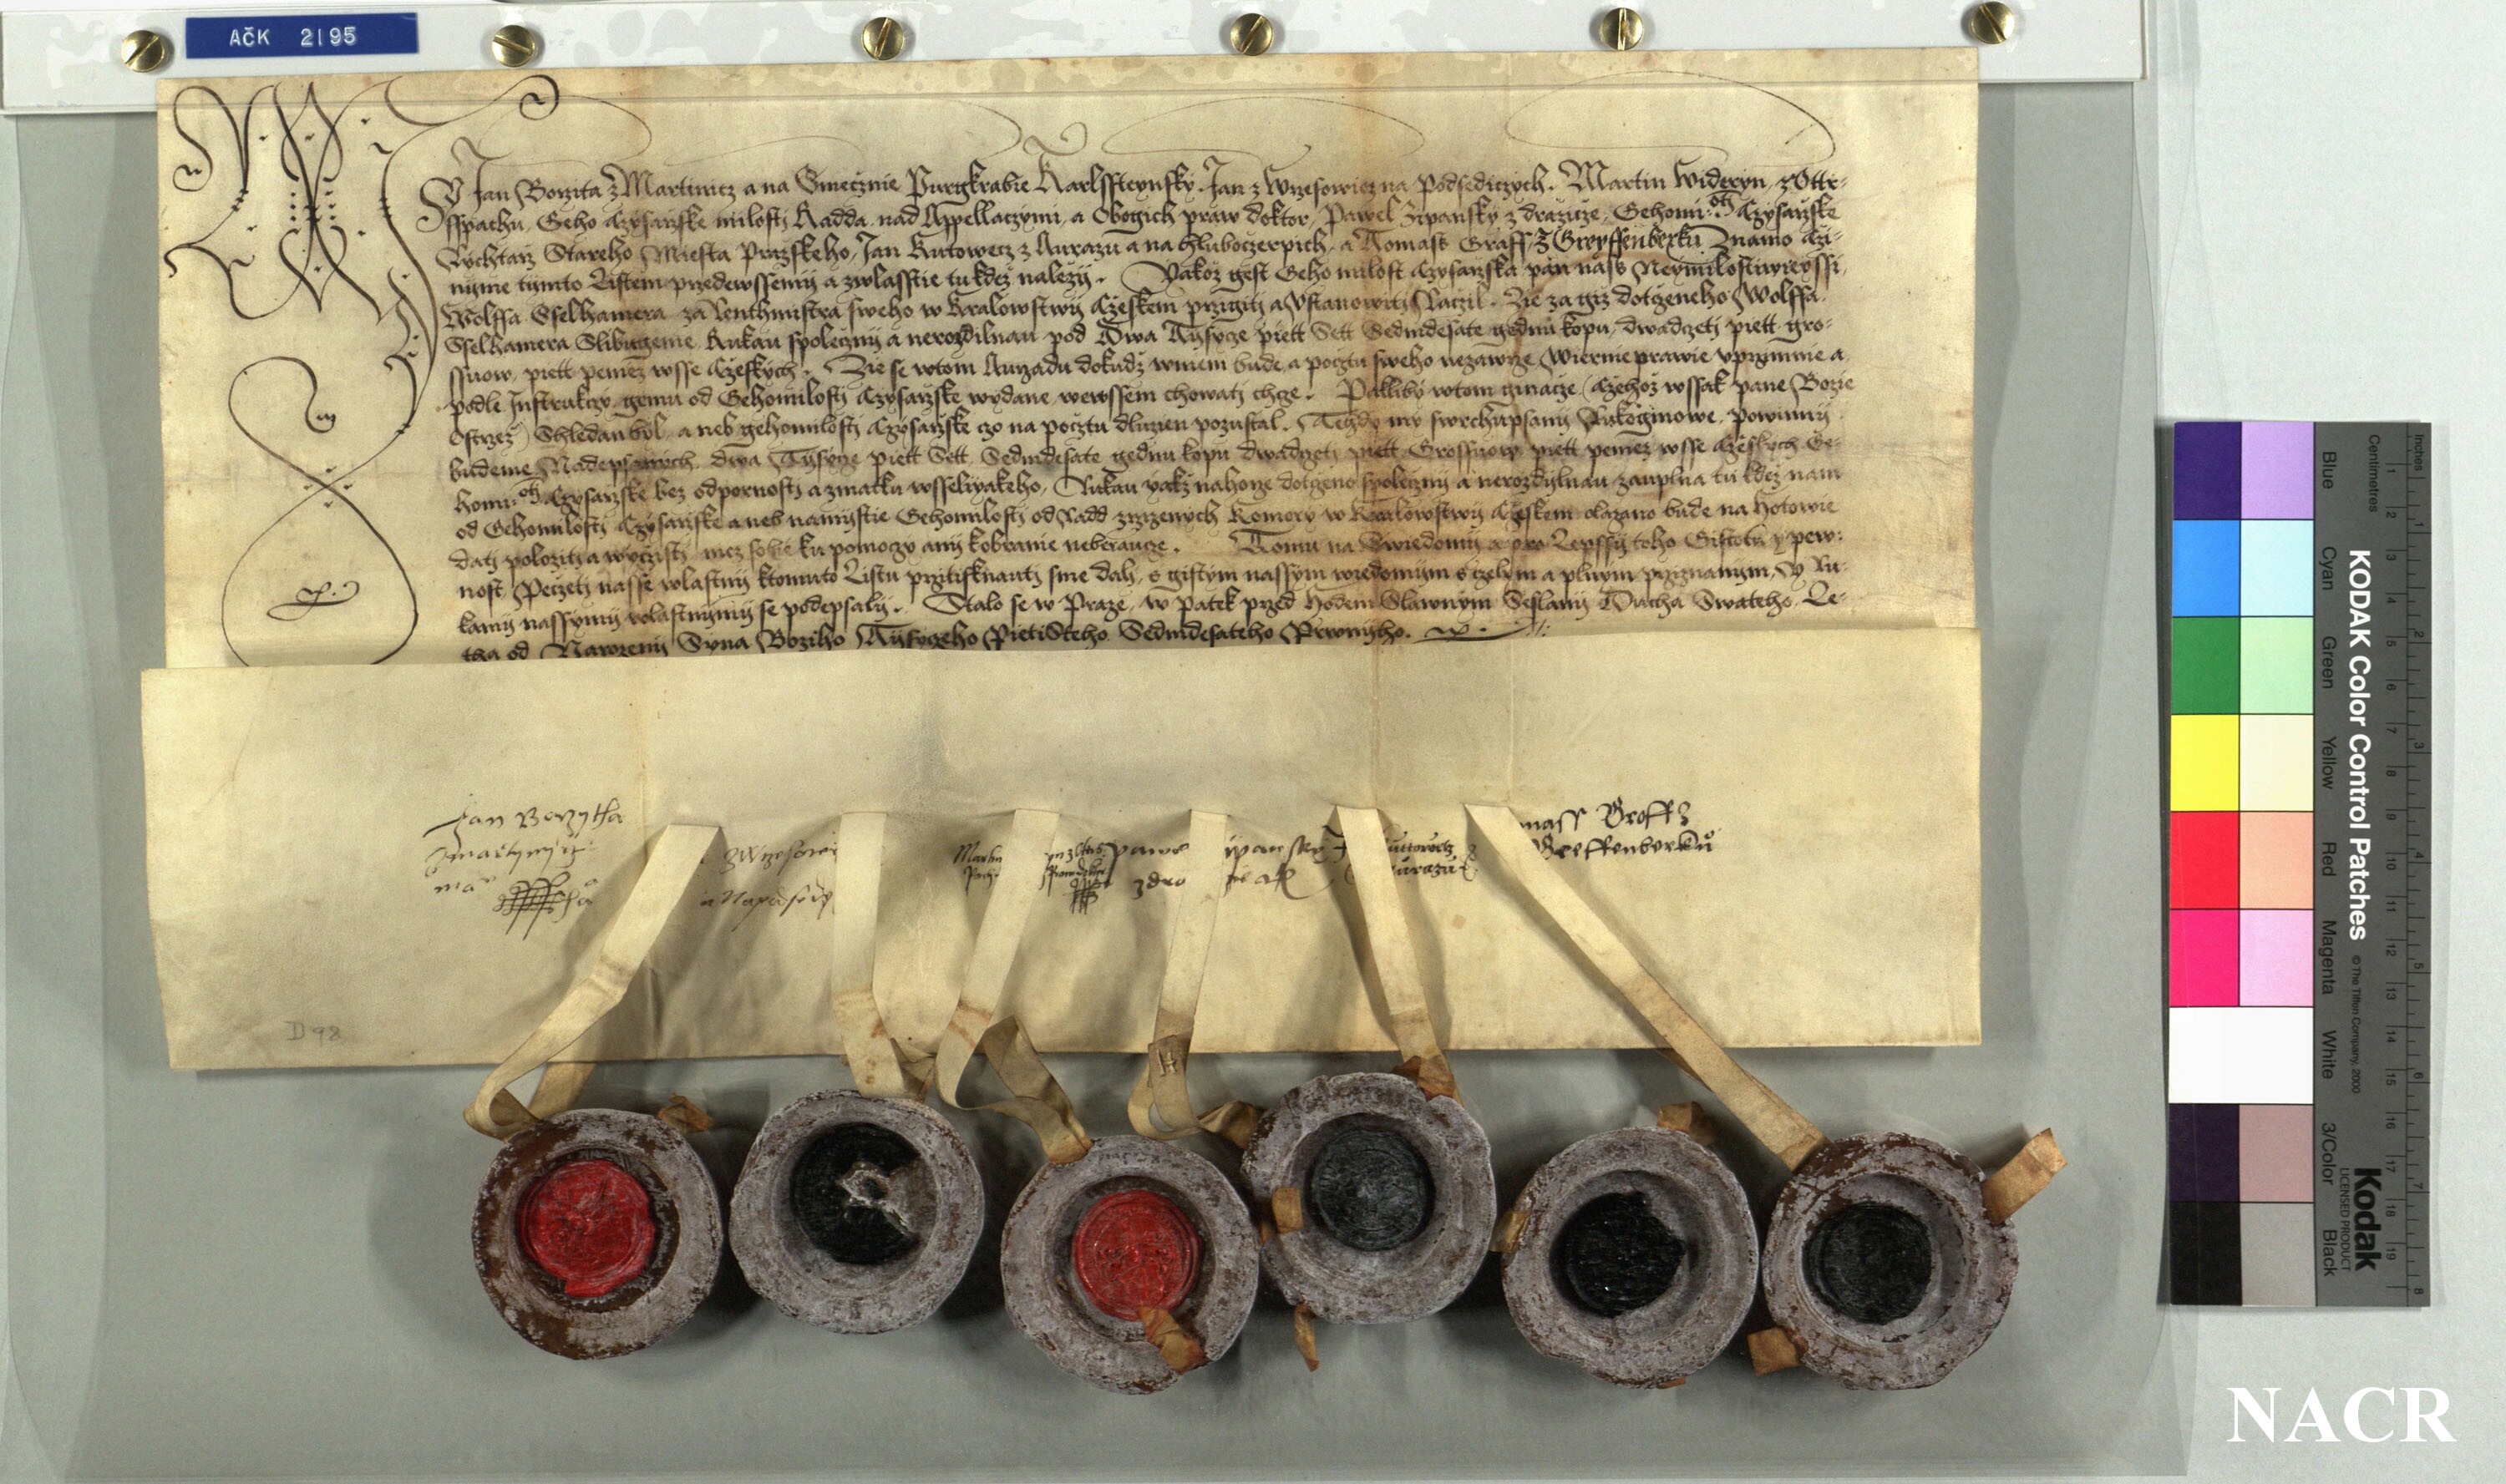 AčK 2195
My Jan Borzita z Martinicz a na Smecznie Purgkrabie Karlssteynsky. Jan z Wrzesowicz na Podsediczych. Martin Wideryn, z Ottr-
sspachu, Geho Czysarzske milosti Radda nad Appellaczymi, a Obogich praw doktor, Pawel Zipansky z drazicze, Gehomi: Czysarzske
Rychtarz Stareho Miesta Prazskeho, Jan Kutowecz z Aurazu a na hluboczerpich, a Tomass Graff, z Greyffenberku Znamo czi-
nyme tymto Listem przedewssemy a zwlasstie tu kdez nalezy. Yakoz gest Geho milost Czysarzska pan nass Neymilostiwieyssi,
Wolffa Sselhamera za Renthmistra sweho w Kralowstwy Czeskem przigiti a Ustanowiti Raczil. Zie za giz dotczeneho Wolffa
Sselhamera Slibugeme, Rukau spoleczny a nerozdilnau pod Dwa Tisycze piett Sett Sedmdesate gednu kopu, dwadczeti piett gro-
ssuow, piett peniez wsse Czeskych. Zie se wtom Aurzadu dokudz wniem bude, a pocztu sweho nezawrze, Wiernie prawie vprzimnie a
podle Instrukczy, gemu od Gehomilosti Czysarzske wydane, wewssem chowati chcze. Paklibÿ wtom ginacze (Czehoz wssak pane Bozie
Ostrzez) Shledan byl, a neb gehomilosti Czysarzske czo na pocztu dluzien pozustal. Tehdy my swrchupsany Rukogmowe, powinny
budeme Nadepsanych, dwa Tisycze piett Sett Sedmdesate gednu kopu dwadczeti piett Grossuow piett peniez wsse Czeskych Ge-
homi: Czysarzske bez odpornosti a zmatku wsselyakeho, Rukau yakz nahorze dotczeno spoleczny a nerozdylnau zauplna tu kdez nam
od Gehomilosti Czysarzske a neb namystie Gehomilosti od Radd zrzizenych Komory w Kralowstwy Czeskem vkazano bude na hotowie
dati poloziti a wyczisti, nicz sobie ku pomoczy any k obranie neberaucze. Tomu na Swiedomy a pro Lepssy toho Gistotu y pew-
nost, Peczeti nasse wlastny ktomuto Listu przitisknauti sme dali, s gistym nassym wiedomym s czelym a plnym przyznanym, Y Ru-
kamy nassymy wlastnymy se podepsaly. Stalo se w Praze, w Patek przed hodem Slawnym Seslany Ducha Swateho. Le-
tha od Narozeny Syna Boziho Tisyczeho Pietisteho Sedmdesateho Prwnyho.
Jan Borzytha
z martynycz
ma
z Wrzesowi
a Na podsedy
Martin
Pawe
ipansky
z dra
uttowecz
aurazu
mass Groff z
Greffenberku
D 98
H
KODAK Color Control Patches
© The Tiffen Company, 2000
Kodak
LICENSED PRODUCT
Blue Cyan Green Yellow Red Magenta White 3/Color Black
Inches
Centimetres
1 2 3 4 5 6 7 8 9 10 11 12 13 14 15 16 17 18 19
1 2 3 4 5 6 7 8
NACR